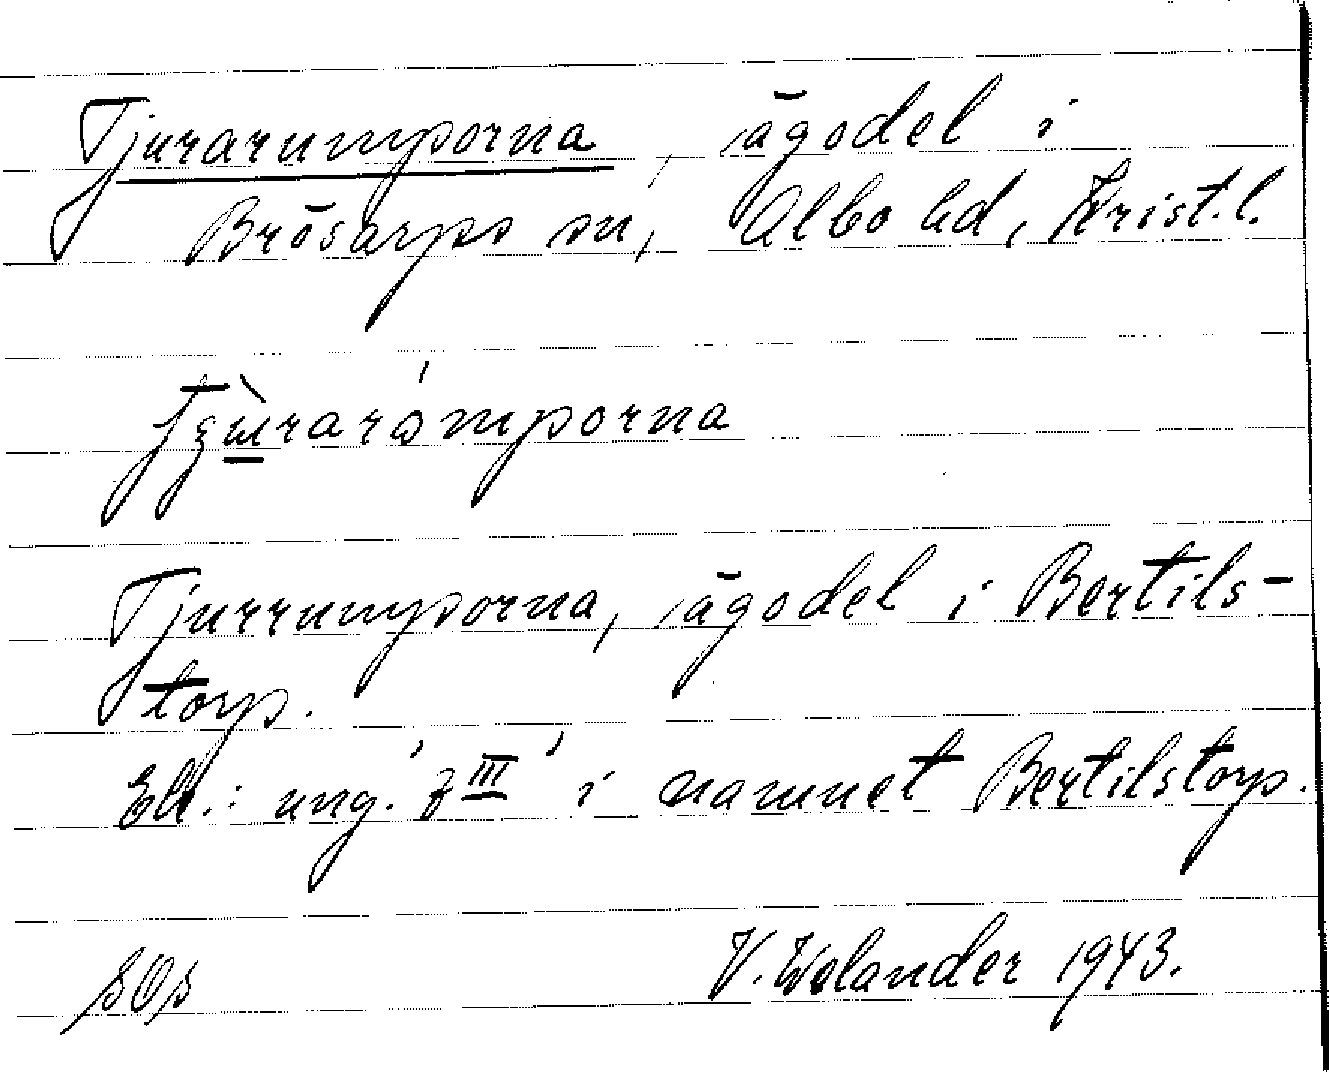 Tjurarumporna, ägodel i
Brösarps sn, Albo hd, Krist. l.
Tjurrumporna, ägodel i Bertils-
torp.
Elt.: ung. z III i namnet Bertilstorp.
V. Welander 1943.